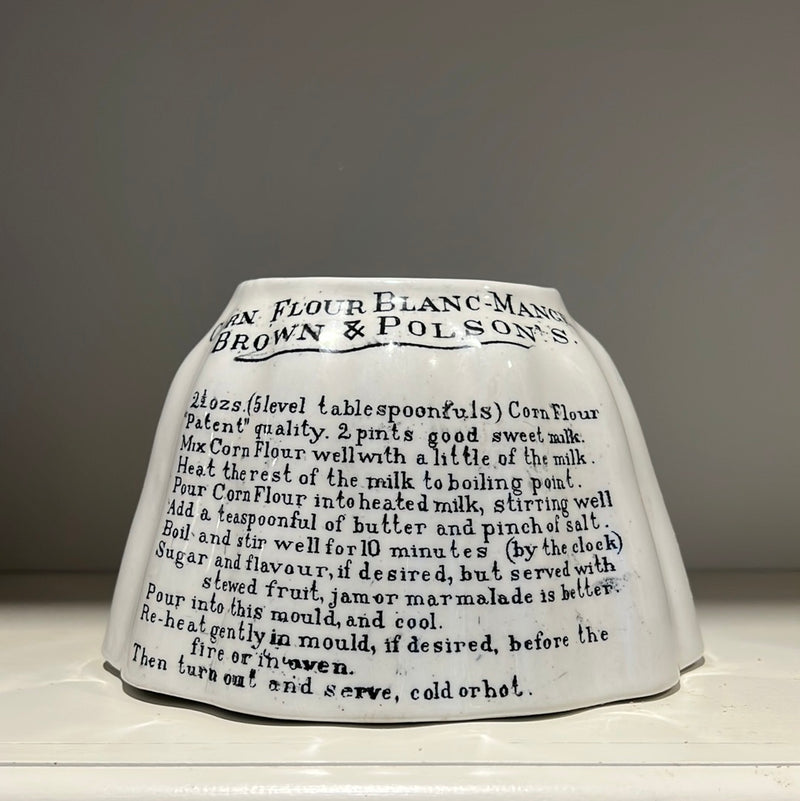 CORN FLOUR BLANC-MANGE
BROWN & POLSON'S.
2½ozs. (5 level tablespoonfuls) Corn Flour
"Patent" quality. 2 pints good sweet milk.
Mix Corn Flour well with a little of the milk.
Heat the rest of the milk to boiling point.
Pour Corn Flour into heated milk, stirring well
Add a teaspoonful of butter and pinch of salt.
Boil and stir well for 10 minutes (by the clock)
Sugar and flavour, if desired, but served with
stewed fruit, jam or marmalade is better.
Pour into this mould, and cool.
Re-heat gently in mould, if desired, before the
fire or in oven.
Then turn out and serve, cold or hot.